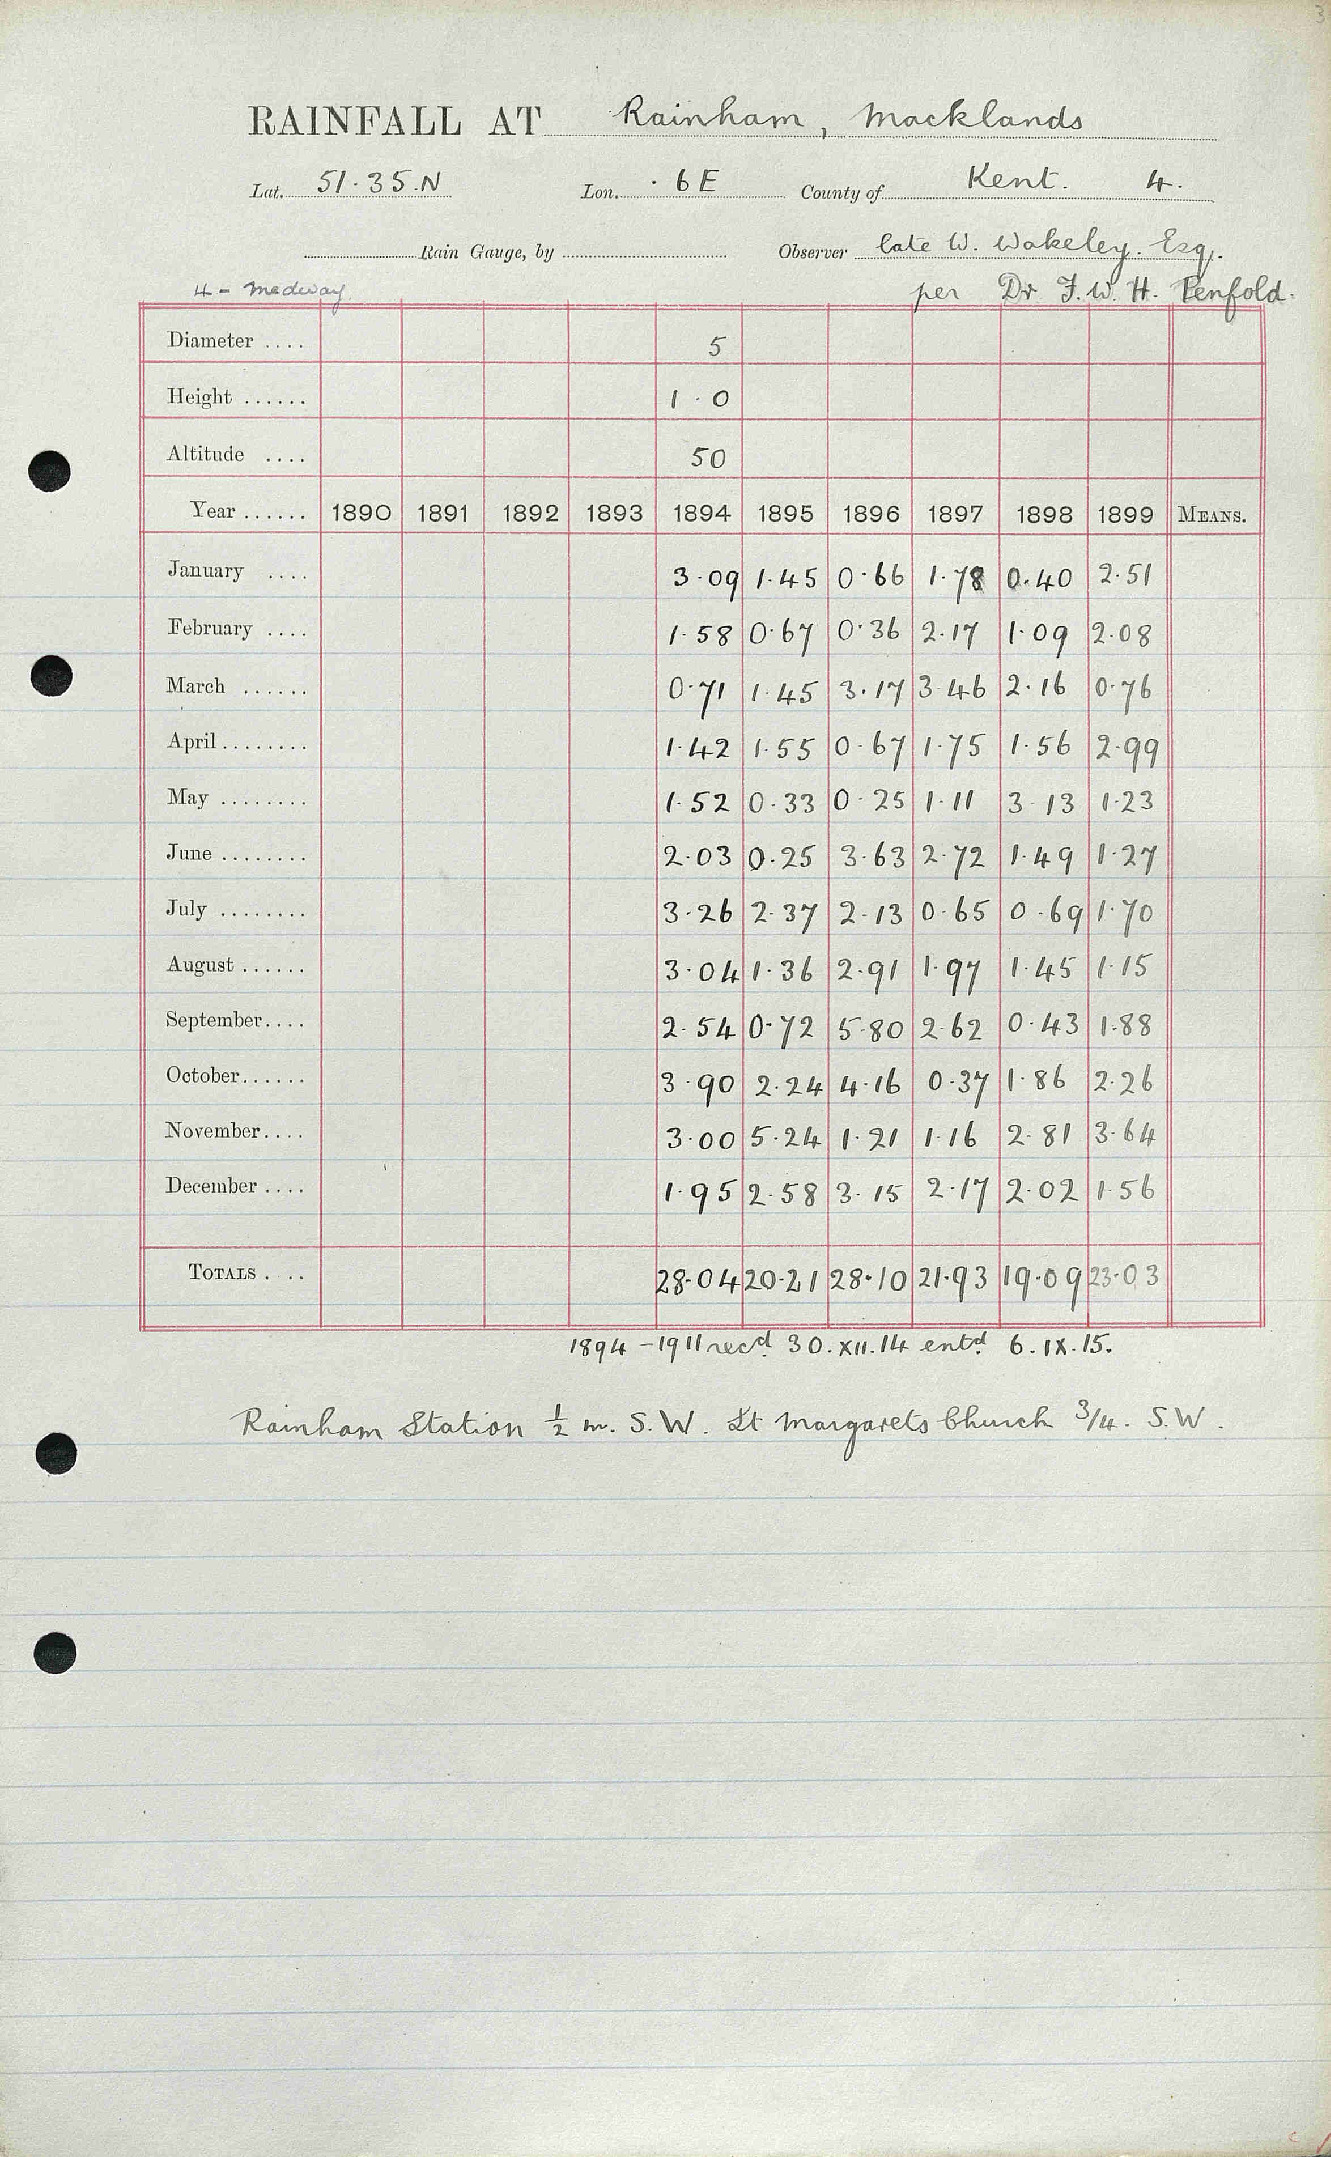 3
RAINFALL AT Rainham, Macklands
Lat. 51.35.N Lon. .6E County of Kent. 4.
Rain Gauge, by Observer late W. Wakeley. Esq.
4 - Medway per Dr F. W. H. Penfold.
Diameter .... 5
Height ...... 1.0
Altitude .... 50
Year ...... 1890 1891 1892 1893 1894 1895 1896 1897 1898 1899 MEANS.
January .... 3.09 1.45 0.66 1.78 0.40 2.51
February .... 1.58 0.67 0.36 2.17 1.09 2.08
March ...... 0.71 1.45 3.17 3.46 2.16 0.76
April ........ 1.42 1.55 0.67 1.75 1.56 2.99
May ........ 1.52 0.33 0.25 1.11 3.13 1.23
June ........ 2.03 0.25 3.63 2.72 1.49 1.27
July ........ 3.26 2.37 2.13 0.65 0.69 1.70
August ...... 3.04 1.36 2.91 1.97 1.45 1.15
September.... 2.54 0.72 5.80 2.62 0.43 1.88
October...... 3.90 2.24 4.16 0.37 1.86 2.26
November.... 3.00 5.24 1.21 1.16 2.81 3.64
December .... 1.95 2.58 3.15 2.17 2.02 1.56
TOTALS . .. 28.04 20.21 28.10 21.93 19.09 23.03
1894 - 1911 recd 30.XII.14 entd 6.IX.15.
Rainham Station ½ m. S.W. St Margarets Church 3/4. S.W.